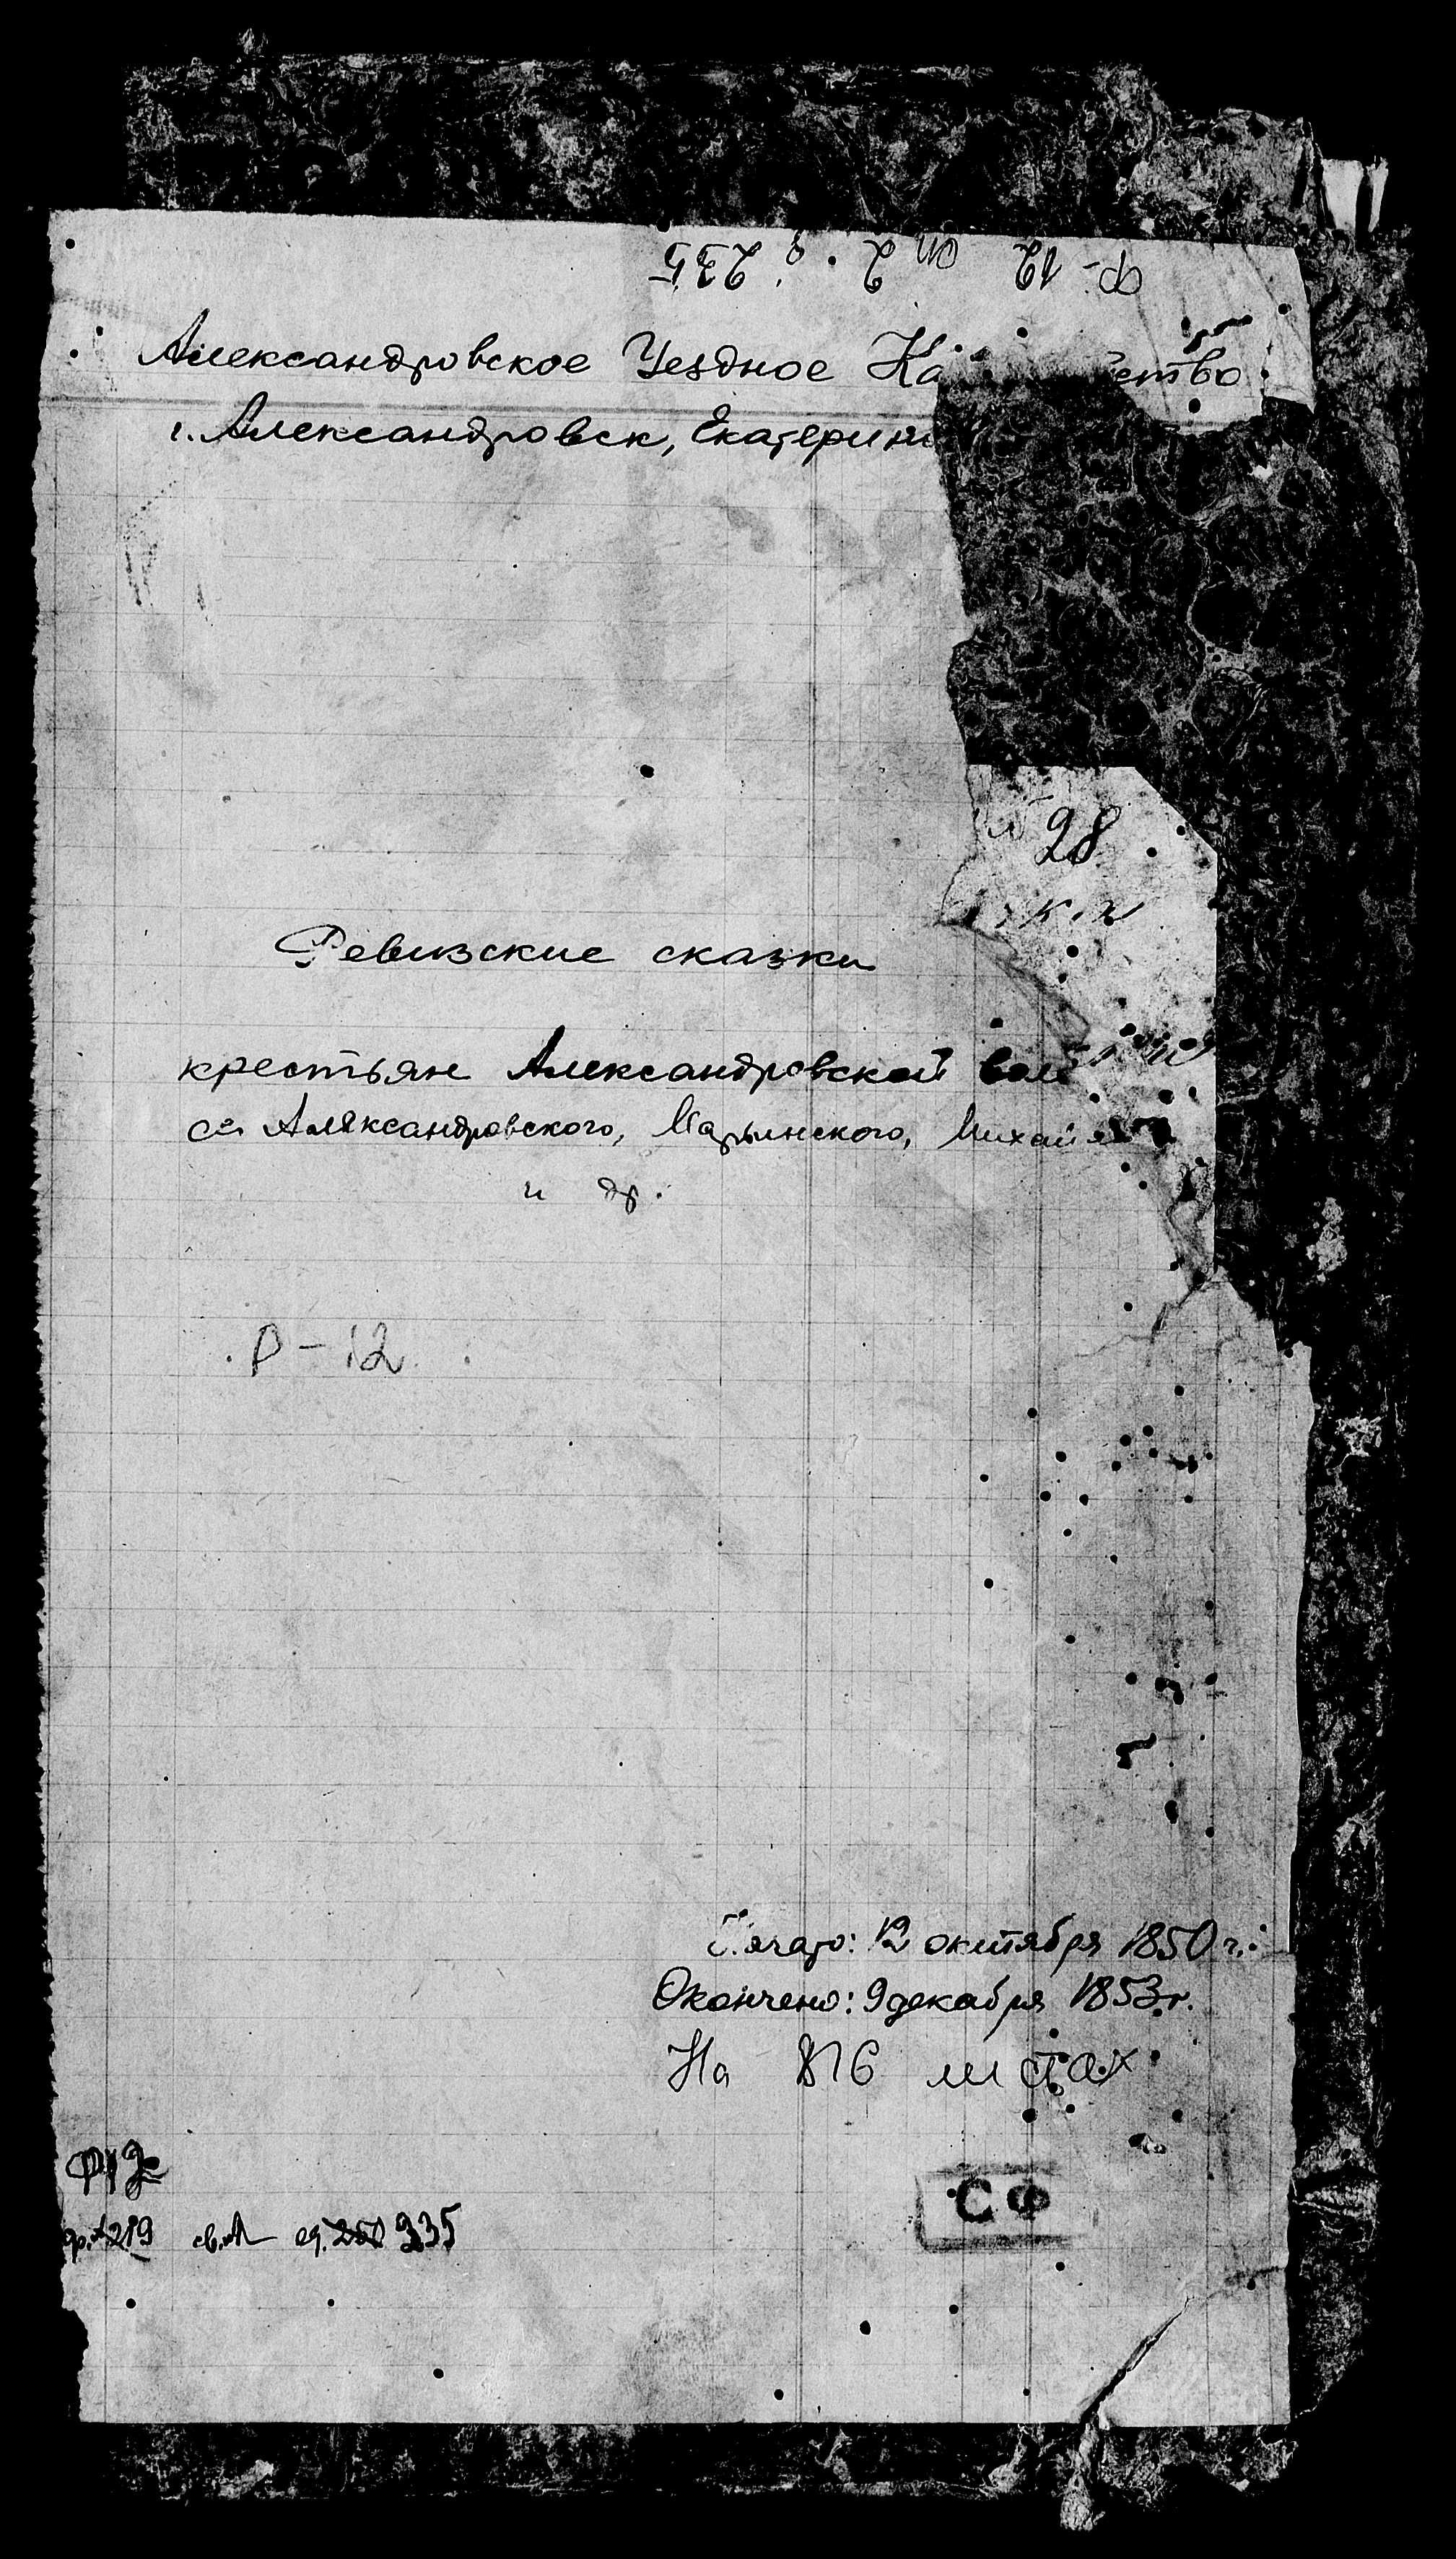 Ф. 12 оп 2. д. 235
Александровское Уездное Ка ство
г. Александровск, Екатерин
28
Ревизские сказки
крестьян Александровской вол
сс. Александровского, Марьинского, Михайл
и др.
Р-12
Начато: 12 октября 1850 г.
Окончено: 9 декабря 1853 г.
На 816 листах
Ф 12
219 св. 235
СФ